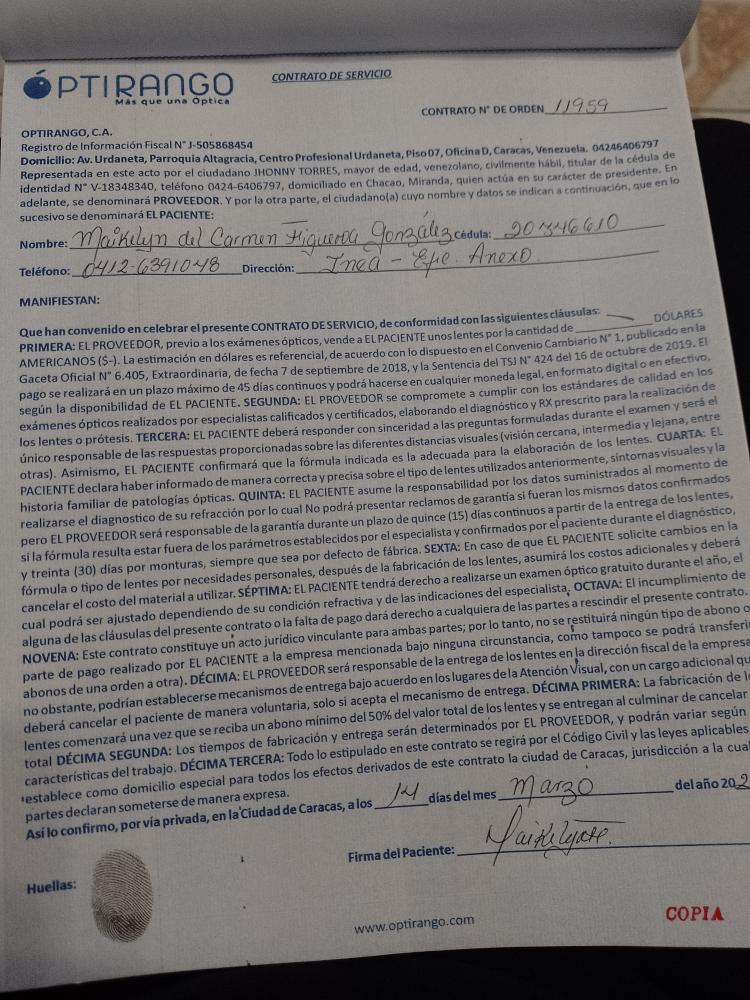 OPTIRANGO
Más que una Óptica
CONTRATO DE SERVICIO
CONTRATO N° DE ORDEN 11959
OPTIRANGO, C.A.
Registro de Información Fiscal N° J-505868454
Domicilio: Av. Urdaneta, Parroquia Altagracia, Centro Profesional Urdaneta, Piso 07, Oficina D, Caracas, Venezuela. 04246406797
Representada en este acto por el ciudadano JHONNY TORRES, mayor de edad, venezolano, civilmente hábil, titular de la cédula de
identidad N° V-18348340, teléfono 0424-6406797, domiciliado en Chacao, Miranda, quien actúa en su carácter de presidente. En
adelante, se denominará PROVEEDOR. Y por la otra parte, el ciudadano(a) cuyo nombre y datos se indican a continuación, que en lo
sucesivo se denominará EL PACIENTE:
Nombre: Maikelyn del Carmen Figueroa González Cédula: 20346610
Teléfono: 0412-6391048 Dirección: Inea - Efe. Anexo.
MANIFIESTAN:
Que han convenido en celebrar el presente CONTRATO DE SERVICIO, de conformidad con las siguientes cláusulas:
PRIMERA: EL PROVEEDOR, previo a los exámenes ópticos, vende a EL PACIENTE unos lentes por la cantidad de DÓLARES
AMERICANOS ($-). La estimación en dólares es referencial, de acuerdo con lo dispuesto en el Convenio Cambiario N° 1, publicado en la
Gaceta Oficial N° 6.405, Extraordinaria, de fecha 7 de septiembre de 2018, y la Sentencia del TSJ N° 424 del 16 de octubre de 2019. El
pago se realizará en un plazo máximo de 45 días continuos y podrá hacerse en cualquier moneda legal, en formato digital o en efectivo,
según la disponibilidad de EL PACIENTE. SEGUNDA: EL PROVEEDOR se compromete a cumplir con los estándares de calidad en los
exámenes ópticos realizados por especialistas calificados y certificados, elaborando el diagnóstico y RX prescrito para la realización de
los lentes o prótesis. TERCERA: EL PACIENTE deberá responder con sinceridad a las preguntas formuladas durante el examen y será el
único responsable de las respuestas proporcionadas sobre las diferentes distancias visuales (visión cercana, intermedia y lejana, entre
otras). Asimismo, EL PACIENTE confirmará que la fórmula indicada es la adecuada para la elaboración de los lentes. CUARTA: EL
PACIENTE declara haber informado de manera correcta y precisa sobre el tipo de lentes utilizados anteriormente, síntomas visuales y la
historia familiar de patologías ópticas. QUINTA: EL PACIENTE asume la responsabilidad por los datos suministrados al momento de
realizarse el diagnostico de su refracción por lo cual No podrá presentar reclamos de garantía si fueran los mismos datos confirmados
pero EL PROVEEDOR será responsable de la garantía durante un plazo de quince (15) días continuos a partir de la entrega de los lentes,
si la fórmula resulta estar fuera de los parámetros establecidos por el especialista y confirmados por el paciente durante el diagnóstico,
y treinta (30) días por monturas, siempre que sea por defecto de fábrica. SEXTA: En caso de que EL PACIENTE solicite cambios en la
fórmula o tipo de lentes por necesidades personales, después de la fabricación de los lentes, asumirá los costos adicionales y deberá
cancelar el costo del material a utilizar. SÉPTIMA: EL PACIENTE tendrá derecho a realizarse un examen óptico gratuito durante el año, el
cual podrá ser ajustado dependiendo de su condición refractiva y de las indicaciones del especialista. OCTAVA: El incumplimiento de
alguna de las cláusulas del presente contrato o la falta de pago dará derecho a cualquiera de las partes a rescindir el presente contrato.
NOVENA: Este contrato constituye un acto jurídico vinculante para ambas partes; por lo tanto, no se restituirá ningún tipo de abono o
parte de pago realizado por EL PACIENTE a la empresa mencionada bajo ninguna circunstancia, como tampoco se podrá transferir
abonos de una orden a otra). DÉCIMA: EL PROVEEDOR será responsable de la entrega de los lentes en la dirección fiscal de la empresa
no obstante, podrían establecerse mecanismos de entrega bajo acuerdo en los lugares de la Atención Visual, con un cargo adicional qu
deberá cancelar el paciente de manera voluntaria, solo si acepta el mecanismo de entrega. DÉCIMA PRIMERA: La fabricación de l
lentes comenzará una vez que se reciba un abono mínimo del 50% del valor total de los lentes y se entregan al culminar de cancelar
total DÉCIMA SEGUNDA: Los tiempos de fabricación y entrega serán determinados por EL PROVEEDOR, y podrán variar según
características del trabajo. DÉCIMA TERCERA: Todo lo estipulado en este contrato se regirá por el Código Civil y las leyes aplicables
establece como domicilio especial para todos los efectos derivados de este contrato la ciudad de Caracas, jurisdicción a la cual
partes declaran someterse de manera expresa.
Así lo confirmo, por vía privada, en la Ciudad de Caracas, a los 14 días del mes Marzo del año 202
Firma del Paciente:
Huellas:
www.optirango.com
COPIA